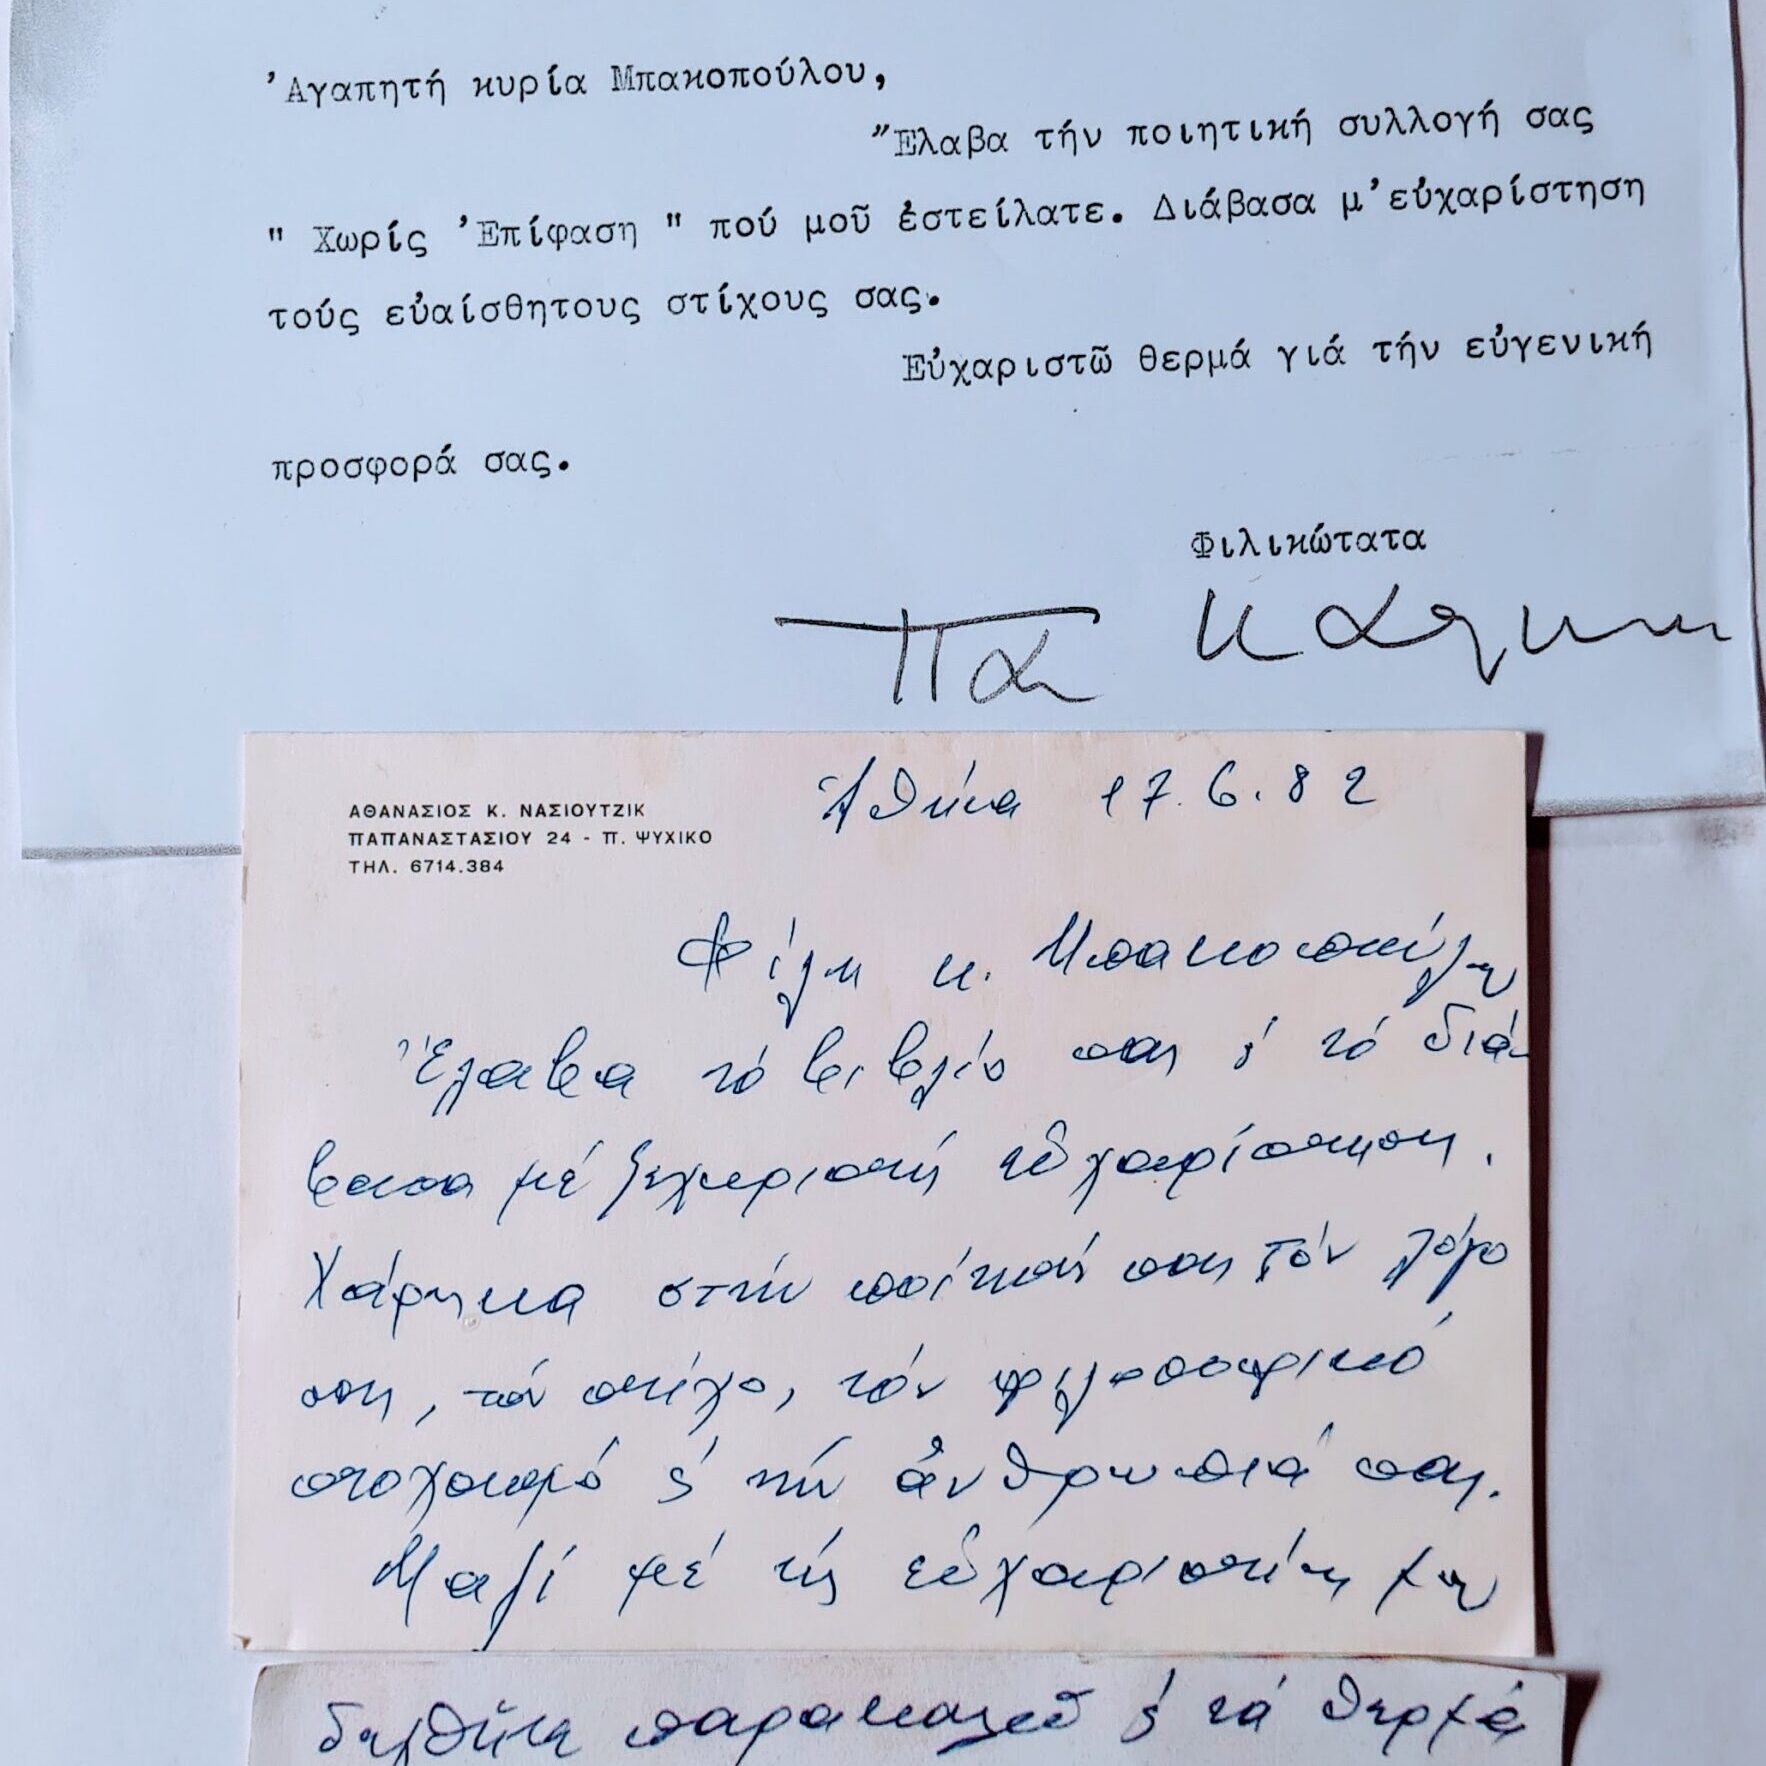 ’Αγαπητή κυρία Μπακοπούλου,
"Ελαβα τήν ποιητική συλλογή σας
" Χωρίς ’Επίφαση " πού μοῦ ἐστείλατε. Διάβασα μ’εὐχαρίστηση
τούς εὐαίσθητους στίχους σας.
Εὐχαριστῶ θερμά γιά τήν εὐγενική
προσφορά σας.
Φιλικώτατα
ΑΘΑΝΑΣΙΟΣ Κ. ΝΑΣΙΟΥΤΖΙΚ
ΠΑΠΑΝΑΣΤΑΣΙΟΥ 24 - Π. ΨΥΧΙΚΟ
ΤΗΛ. 6714.384
Ἀθήνα 17.6.82
Φίλη κ. Μπακοπούλου
Ἔλαβα τό βιβλίο σας ϛ́ τό διά-
βασα μέ ξεχωριστή εὐχαρίστηση.
Χάρηκα στήν ποίησή σας τόν λόγο
σας, τόν στίχο, τόν φιλοσοφικό
στοχασμό ϛ́ τήν ἀνθρωπιά σας.
Μαζί μέ τίς εὐχαριστίες μου
δεχθῆτε παρακαλῶ ϛ́ τά θερμά